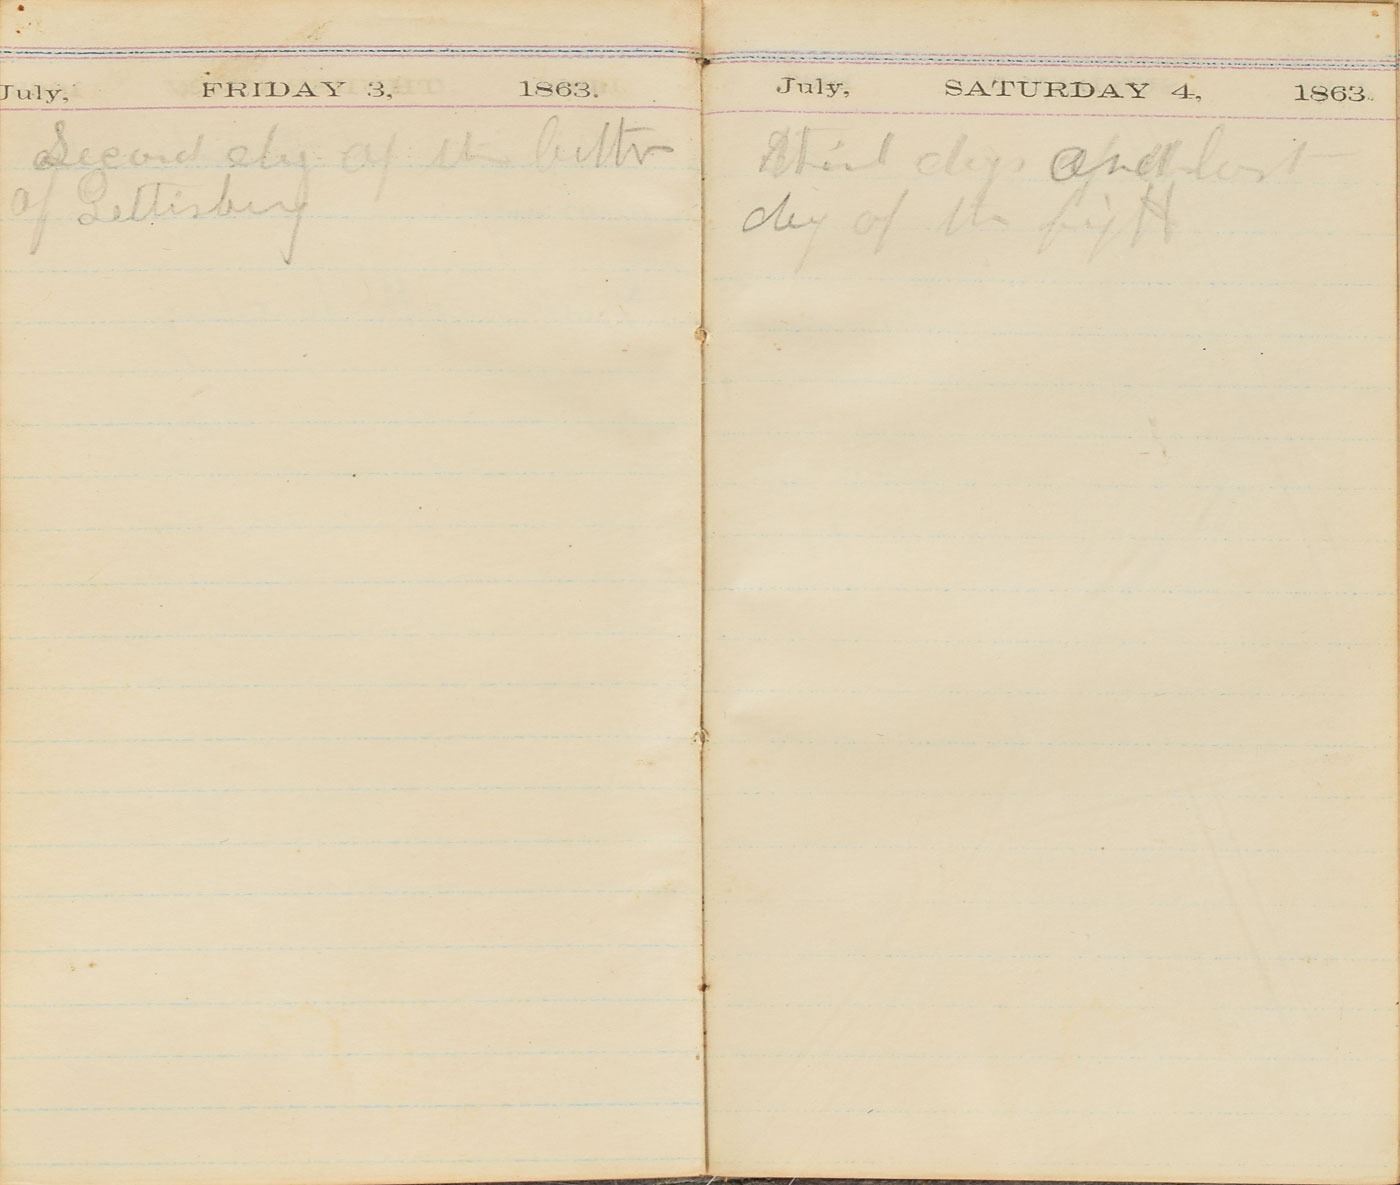 July, FRIDAY 3, 1863.
Second day of the battle
of Gettisburg
July, SATURDAY 4, 1863.
Third days and last
day of the fight